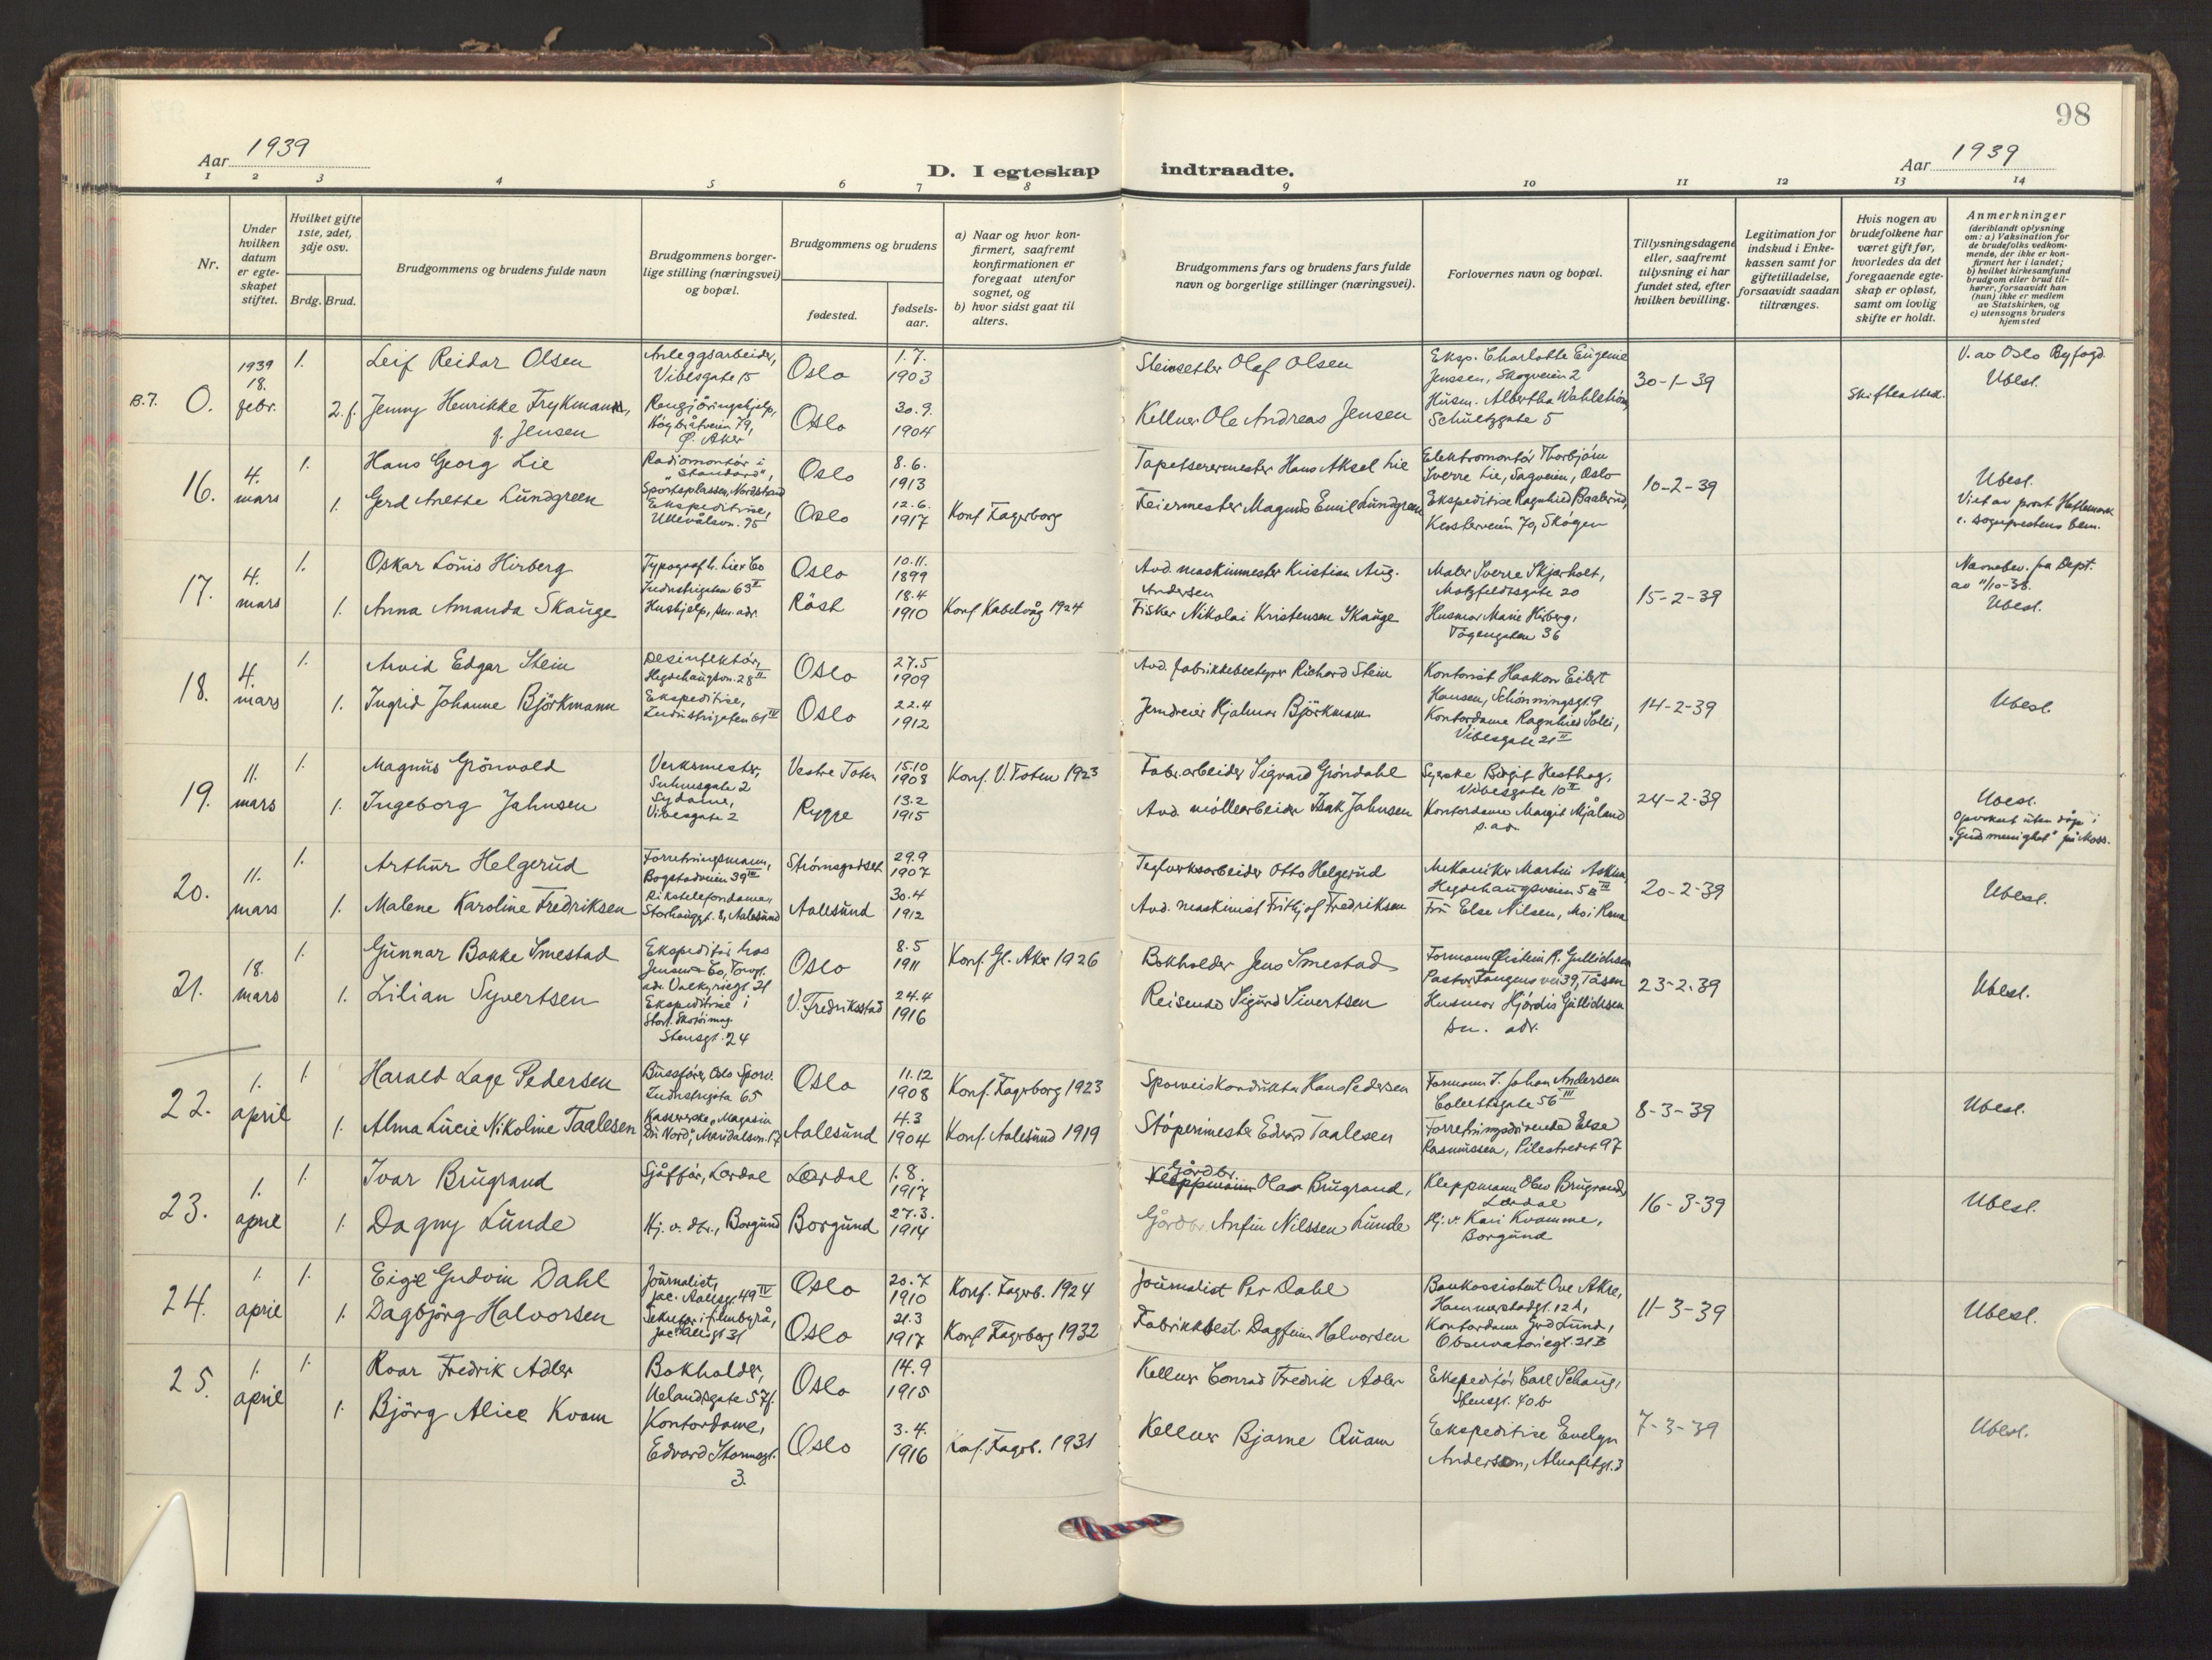 98
Aar 1939
D. I egteskap indtraadte.
Aar 1939
1 2 3 4 5 6 7 8 9 10 11 12 13 14
Nr.
Under hvilken datum er egteskapet stiftet.
Hvilket gifte 1ste, 2det, 3dje osv.
Brdg. Brud.
Brudgommens og brudens fulde navn
Brudgommens borgerlige stilling (næringsvei) og bopæl.
Brudgommens og brudens
fødested.
fødselsaar.
a) Naar og hvor konfirmert, saafremt konfirmationen er foregaat utenfor sognet, og
b) hvor sidst gaat til alters.
Brudgommens fars og brudens fars fulde navn og borgerlige stillinger (næringsvei).
Forlovernes navn og bopæl.
Tillysningsdagene eller, saafremt tillysning ei har fundet sted, efter hvilken bevilling.
Legitimation for indskud i Enkekassen samt for giftetilladelse, forsaavidt saadan tiltrænges.
Hvis nogen av brudefolkene har været gift før, hvorledes da det foregaaende egteskap er opløst, samt om lovlig skifte er holdt.
Anmerkninger (deriblandt oplysning om: a) Vaksination for de brudefolks vedkommende, der ikke er konfirmert her i landet; b) hvilket kirkesamfund brudgom eller brud tilhører, forsaavidt han (hun) ikke er medlem av Statskirken, og c) utensogns bruders hjemsted
B.7. 0. 1939 18. febr. 1. Leif Reidar Olsen Anleggsarbeider, Vibesgate 15 Oslo 1.7. 1903 Steinsetter Olaf Olsen Eksp. Charlotte Eugenie Jenssen, Skogveien 2 30-1-39 V. av Oslo Byfogd. Ubesl.
2. f. Jenny Henrikke Frykmann, f. Jensen Rengjöringshjelp, Ø. Aker Oslo 30.9. 1904 Kellner Ole Andreas Jensen Husm. Albertha Wahlström, Schultzgate 5 Skifteattest.
16. 4. mars 1. Hans Georg Lie Radiomontör i "Standard", Sportsplassen, Nordstrand Oslo 8.6. 1913 Tapetserermester Hans Aksel Lie Elektromontör Thorbjörn Sverre Lie, Sagveien, Oslo 10-2-39 Ubesl.
1. Gerd Anette Lundgreen Ekspeditrise, Ullevålsvn. 95 Oslo 12.6. 1917 Konf. Fagerborg Feiermester Magnus Emil Lundgreen Ekspeditrise Ragnhild Baalsrud, 79, Skøyen Viet av prest Heftemark e. sogneprestens bem.
17. 4. mars 1. Oskar Louis Hirberg Typograf h. Lie & Co Industrigaten 63 II Oslo 10.11. 1899 Avd. maskinmester Kristian Aug. Andersen Maler Sverre Skjærholt, Motzfeldtsgate 20 15-2-39 Navnebev. fra Dept. av 11/10-38. Ubesl.
1. Anna Amanda Skauge Hushjelp, sm. adr. Röst 18.4 1910 Konf. Kabelvåg 1924 Fisker Nikolai Kristensen Skauge Husmor Marie Hirberg, Töyengaten 36
18. 4. mars 1. Arvid Edgar Stein Desinfektör, Hegdehaugsvn. 28 II Oslo 27.5 1909 Avd. fabrikkbestyrer Richard Stein Kontorist Haakon Eilert Hansen, Schönningsgt. 9 14-2-39 Ubesl.
1. Ingrid Johanne Björkmann Ekspeditrise, Industrigaten 61 IV Oslo 22.4 1912 Jerndreier Hjalmar Björkmann Kontordame Ragnhild Solli, Vibesgate 21 II
19. 11. mars 1. Magnus Grönvold Verksmester, Suhmsgate 2 Vestre Toten 15.10 1908 Konf. V. Toten 1923 Fabr.arbeider Sigvard Gröndahl Syerske Birgit Hesthag, Vibesgate 10 II 24-2-39 Ubesl. Opvokset uten dåp i "Guds menighet" på Moss.
1. Ingeborg Jahnsen Sydame, Vibesgate 2 Rygge 13.2 1915 Avd. möllearbeider Isak Jahnsen Kontordame Margit Mjåland s. ad.
20. 11. mars 1. Arthur Helgerud Forretningsmann, Bogstadveien 39 III Strömsgodset 29.9 1907 Teglverksarbeider Otto Helgerud Mekaniker Martin Askim, Hegdehaugsveien 5 20-2-39 Ubesl.
1. Malene Karoline Fredriksen Rikstelefondame, Storhauggt. 8, Aalesund Aalesund 30.4 1912 Avd. maskinist Fritjof Fredriksen Fru Else Nilsen, Mo i Rana
21. 18. mars 1. Gunnar Bakke Smestad Ekspeditör hos Jensen & Co, Torvgt. adr. Valkyriegt. 21 Oslo 8.5 1911 Konf. Gl. Aker 1926 Bokholder Jens Smestad Formann Øistein R. Gullichsen Pastor Fangens vei 39, Tåsen 23-2-39 Ubesl.
1. Lilian Syvertsen Ekspeditrise i Stensgt. 24 V. Fredrikstad 24.4 1916 Reisende Sigurd Sivertsen Husmor Hjördis Gullichsen sm. adr.
22. 1. april 1. Harald Lage Pedersen Bussförer, Oslo Sporv. Industrigata 65 Oslo 11.12 1908 Konf. Fagerborg 1923 Sporveiskonduktör Hans Pedersen Formann J. Johan Andersen Collettsgate 56 III 8-3-39 Ubesl.
1. Alma Lucie Nikoline Taalesen Kassererske, "Magasin Du Nord", Maridalsvn. 17 Aalesund 4.3 1904 Konf. Aalesund 1919 Stöpermester Edvard Taalesen Forretningsdrivende Else Rasmussen, Pilestredet 97
23. 1. april 1. Ivar Brugrand Sjåfför, Lærdal Lærdal 1.8. 1917 Gårdbr. Kleppmann Olav Brugrand, Kleppmann Olav Brugrand, Lærdal 16-3-39 Ubesl.
1. Dagny Lunde Hj. v. dtr., Borgund Borgund 27.3. 1914 Gårdbr. Anfin Nilssen Lunde Hj. v. Kari Kvamme, Borgund
24. 1. april 1. Eigil Gudvin Dahl Journalist, Jac. Aallsgt. 49 IV Oslo 20.7 1910 Konf. Fagerb. 1924 Journalist Per Dahl Bankassistent Ove Aker, Hammerstadgt. 12 A, 11-3-39 Ubesl.
1. Dagbjörg Halvorsen Sekretær i filmbyrå, Jac. Aallsgt. 31 Oslo 21.3 1917 Konf. Fagerborg 1932 Fabrikkbest. Dagfinn Halvorsen Kontordame Gerd Lund, Observatoriegt. 21 B
25. 1. april 1. Roar Fredrik Adler Bokholder, Uelandsgate 57 f. Oslo 14.9 1915 Kellner Conrad Fredrik Adler Ekspeditör Carl Schaug, Stensgt. 40 b 7-3-39 Ubesl.
1. Björg Alice Kvam Kontordame, Edvard Stormsgt. 3. Oslo 3.4. 1916 Konf. Fagerb. 1931 Kellner Bjarne Quam Ekspeditrise Evelyn Anderson, Almafetgt. 3